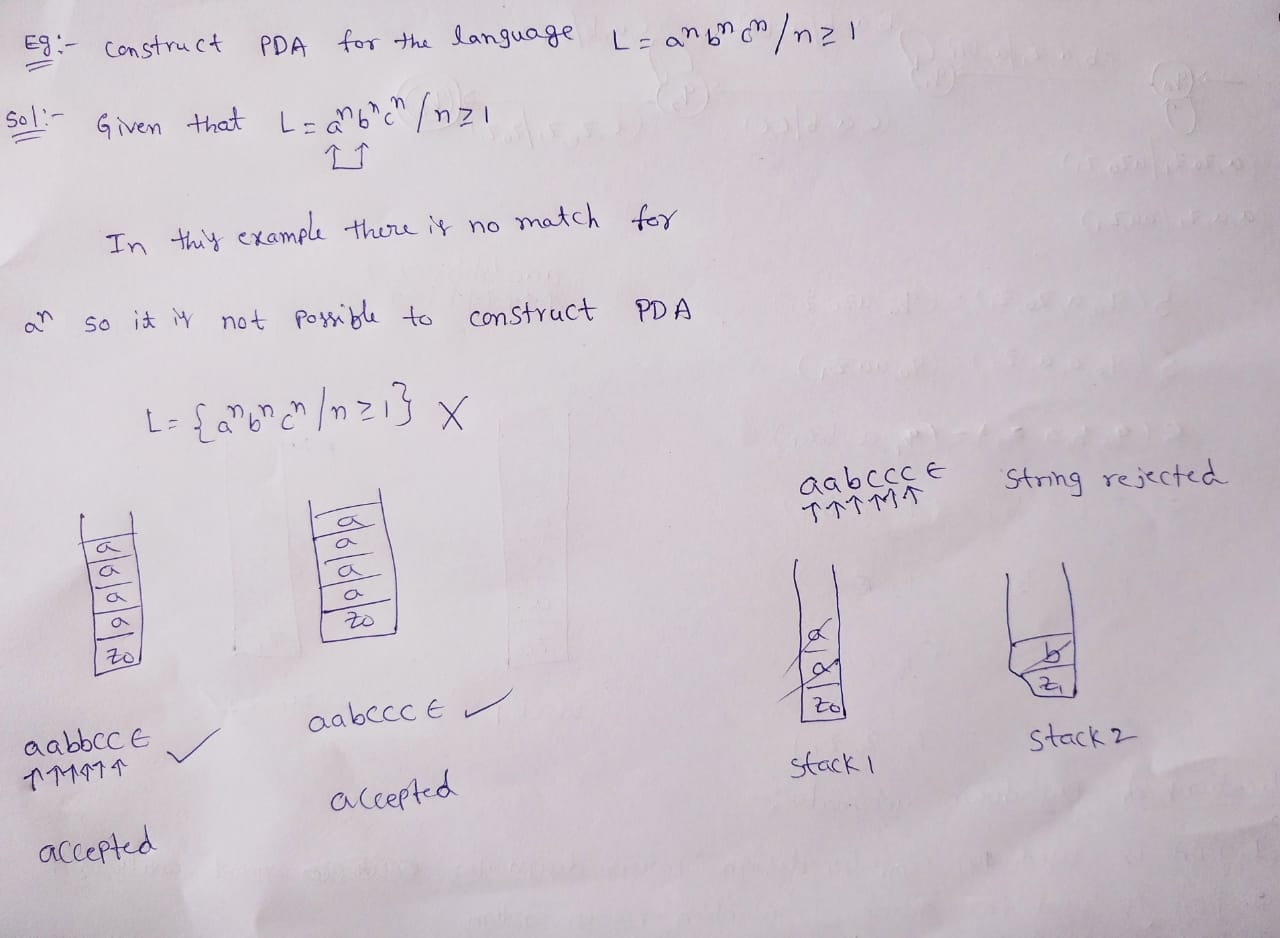 Eg:- Construct PDA for the language L = aⁿbⁿcⁿ/n≥1
Sol:- Given that L = aⁿbⁿcⁿ/n≥1
In this example there is no match for
aⁿ so it is not possible to construct PDA
L = {aⁿbⁿcⁿ/n≥1} X
a
a
a
a
z₀
aabbcc ε ✓
↑↑↑↑↑↑
accepted
a
a
a
a
z₀
aabccc ε ✓
accepted
aabccc ε String rejected
↑↑↑↑↑↑
a
a
z₀
stack 1
b
z₁
stack 2